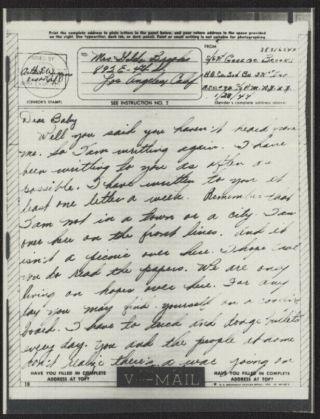 Print the complete address in plain letters in the panel below, and your return address in the space provided on the right. Use typewriter, dark ink, or dark pencil. Faint or small writing is not suitable for photographing.
FROM
TO
Mrs Brooks
892 E-
Los Angeles Calif
(CENSOR'S STAMP)
SEE INSTRUCTION NO. 2
(Sender's complete address above)
1/28/44
Dear Baby
Well you said you haven't heard from
me. So I am writing again. I have
been writting to you as often as
possible. I have written to you at
least one letter a week. Remember that
I am not in a town or a city. I am
over here on the front lines. And it
isn't a picnic over here. I hope that
you do read the papers. We are only
living on hopes over here. For any
day you may find yourself on a
board. I have to duck and dodge bullets
every day. You and the people at home
don't realize there's a war going on
HAVE YOU FILLED IN COMPLETE
ADDRESS AT TOP?
V-MAIL
HAVE YOU FILLED IN COMPLETE
ADDRESS AT TOP?